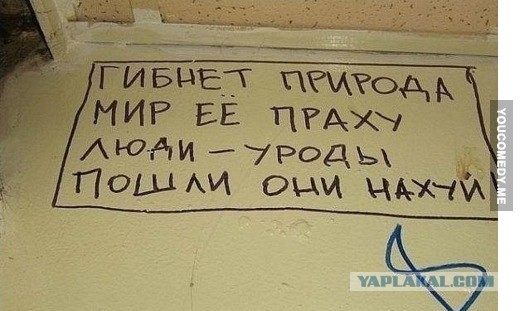 ГИБНЕТ ПРИРОДА
МИР ЕЁ ПРАХУ
ЛЮДИ – УРОДЫ
ПОШЛИ ОНИ НАХУЙ
YOUCOMEDY.ME
YAPLAKAL.COM